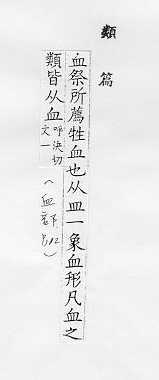 類篇
血祭所薦牲血也从皿一象血形凡血之
類皆从血呼決切文一（血部下
号12）